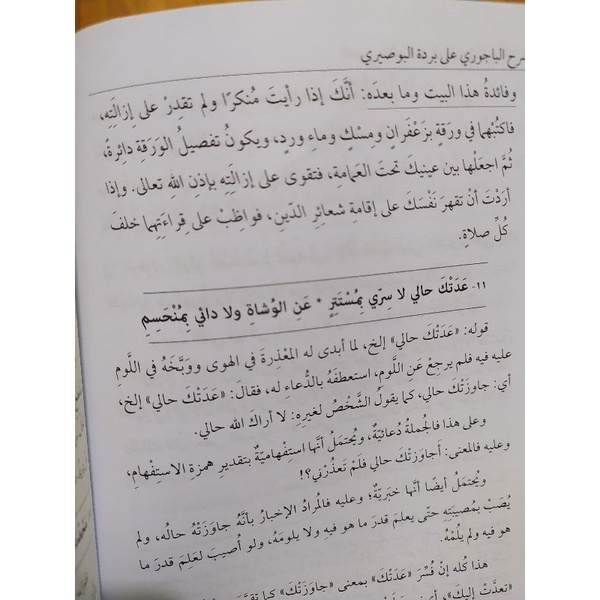 شرح الباجوري على بردة البوصيري
وفائدةُ هذا البيت وما بعدَه: أنَّكَ إذا رأيتَ مُنكرًا ولم تقدِرْ على إزالتِهِ،
فاكتُبْهما في ورَقةٍ بزَعْفَران ومِسْكٍ وماءِ وردٍ، ويكونُ تفصيلُ الوَرقةِ دائِرةً،
ثُمَّ اجعَلْها بين عينيكَ تحتَ العَمامةِ، فتقوى على إزالتِهِ بإذنِ اللهِ تعالى. وإذا
أردْتَ أنْ تقهرَ نَفْسَكَ على إقامةِ شعائرِ الدّينِ، فواظِبْ على قِراءَتِهِما خلفَ
كُلِّ صلاةٍ.
١١- عَدَتْكَ حالي لا سِرّي بِمُسْتَتِرٍ * عَنِ الوُشاةِ ولا دائي بِمُنْحَسِمِ
قوله: «عَدَتْكَ حالي» إلخ، لما أبدى له المَعْذِرةَ في الهوى ووَبَّخَهُ في اللَّومِ
عليه فيه فلم يرجِعْ عَنِ اللَّومِ، استعطفَهُ بالدُّعاءِ له، فقالَ: «عَدَتْكَ حالي» إلخ،
أي: جاوزَتْكَ حالي، كما يقولُ الشَّخْصُ لغيرِهِ: لا أراكَ الله حالي.
وعلى هذا فالجُملةُ دُعائيّةٌ، ويُحتمَلُ أنَّها استِفْهاميّةٌ بتقديرِ همزةِ الاستِفْهامِ،
وعليه فالمعنى: أجاوزتْكَ حالي فلَمْ تَعذُرْني؟!
ويُحتمَلُ أيضًا أنَّها خبَريّةٌ؛ وعليه فالمُرادُ الإخبارُ بأنَّهُ جاوَزَتْهُ حالُه، ولم
يُصَبْ بمُصيبتِهِ حتّى يعلمَ قدرَ ما هو فيه ولا يلومَهُ، ولو أُصيبَ لعَلِمَ قدرَ ما
هو فيه ولم يلُمْهُ.
هذا كُله إنْ فُسِّرَ «عَدَتْكَ» بمعنى «جاوزَتْكَ» كما
«تعدَّتْ إليكَ»،